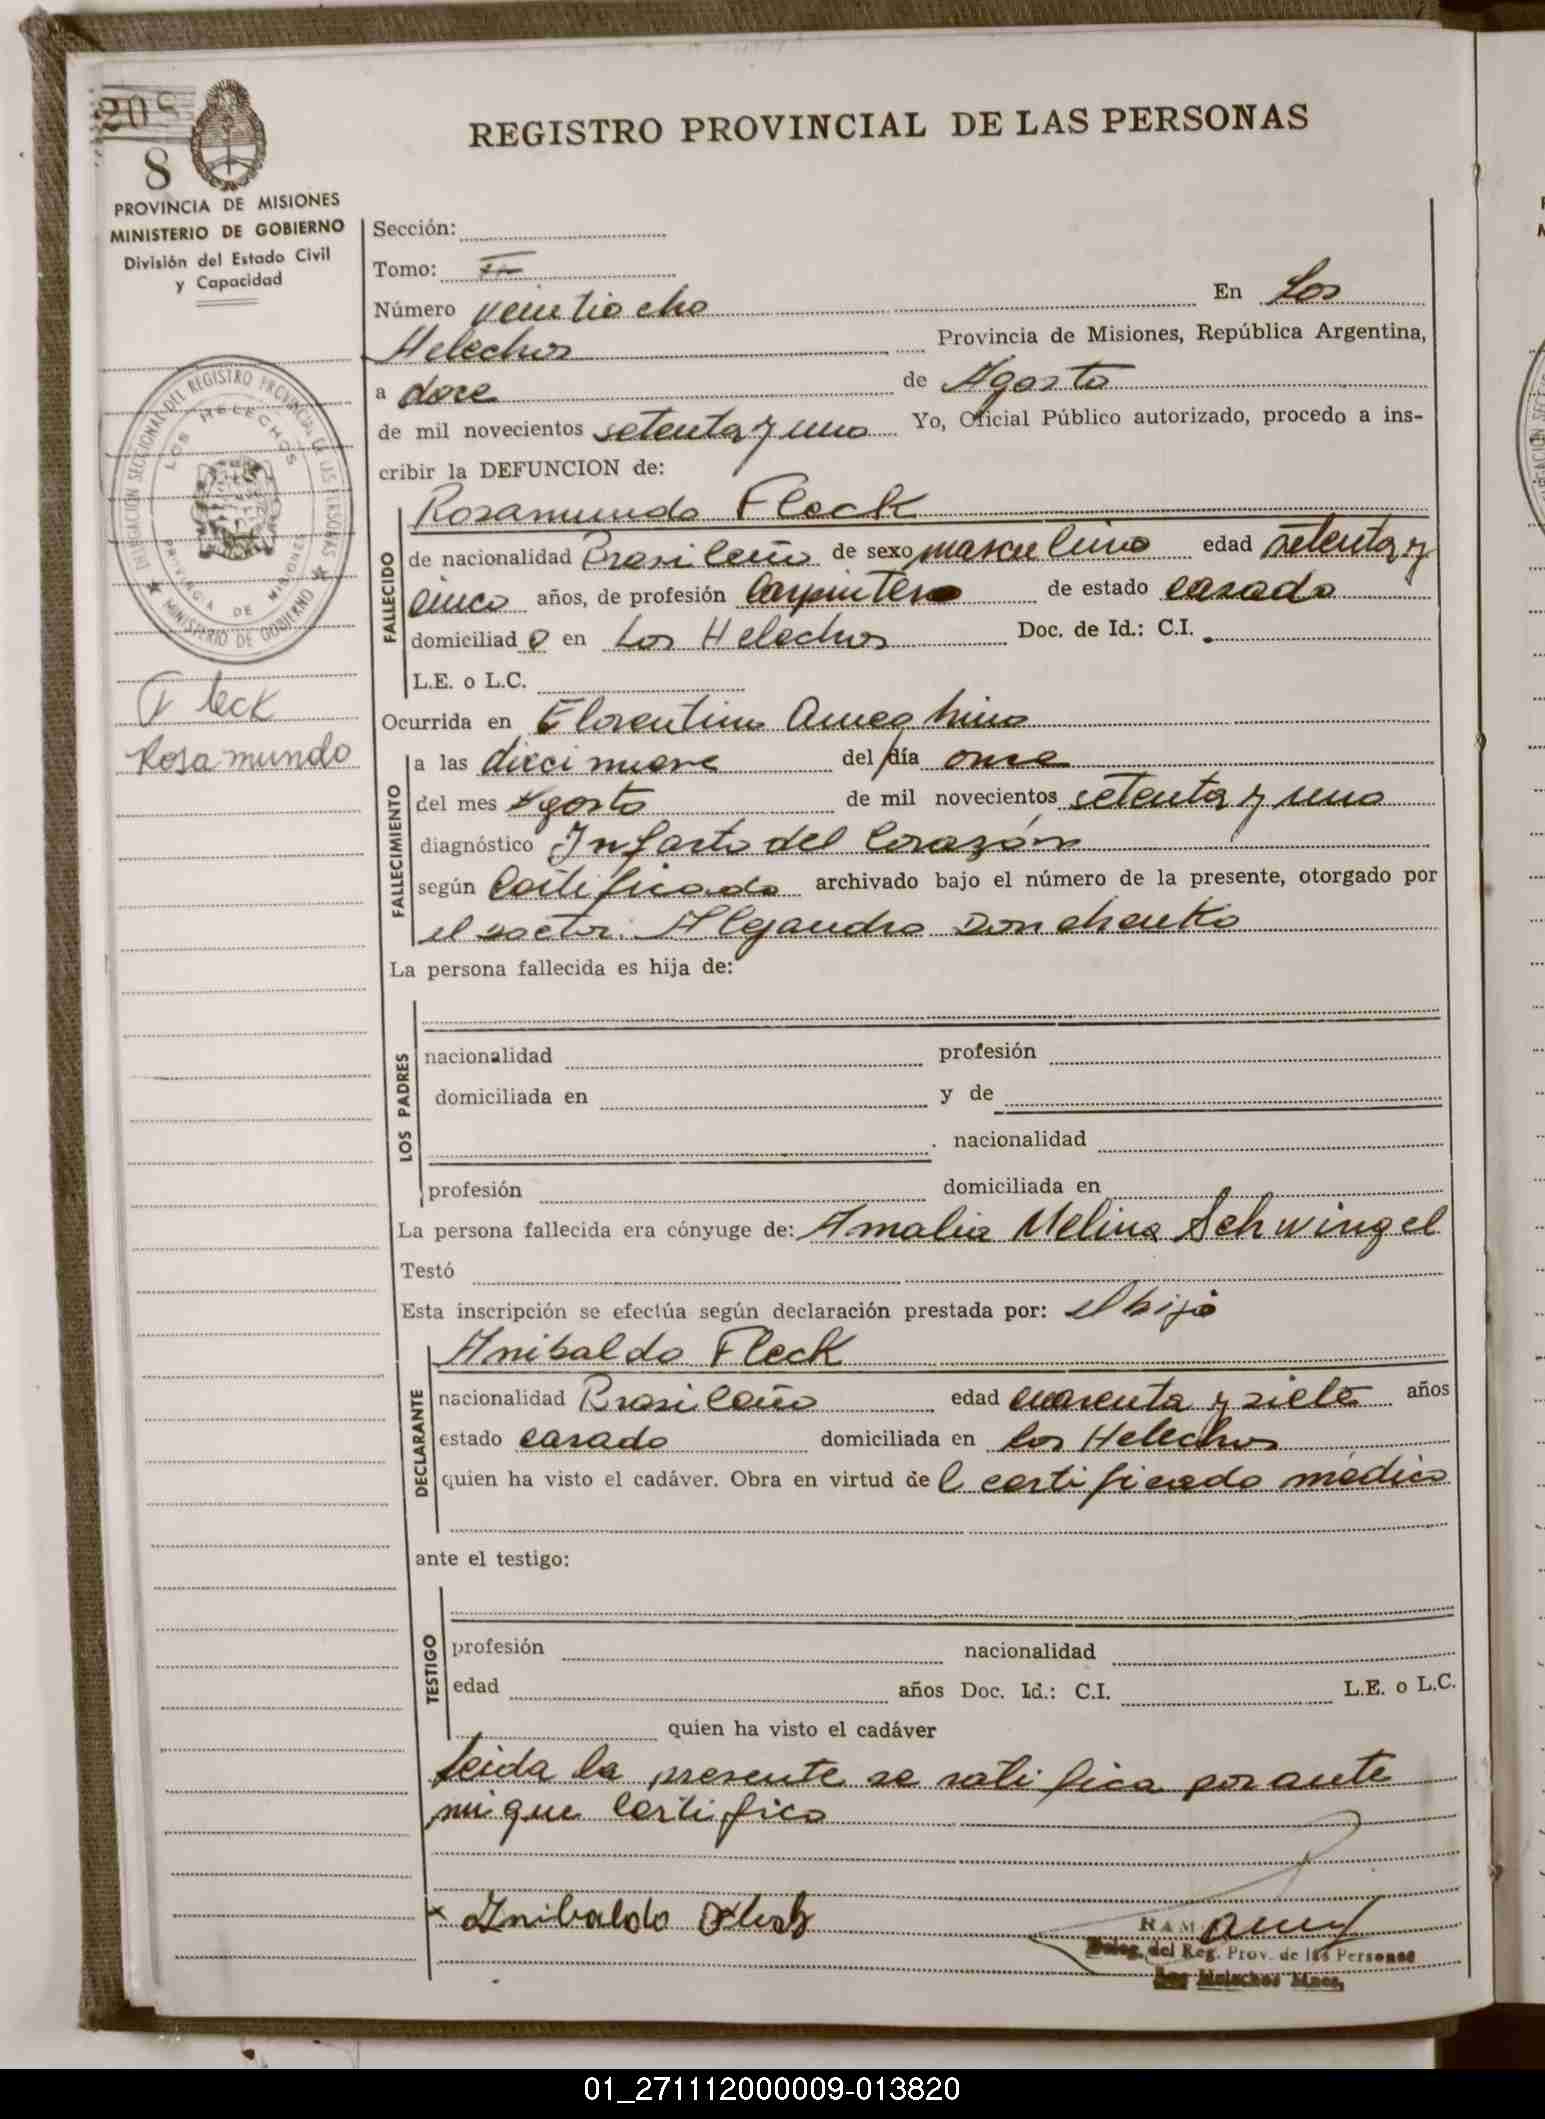 208
8
REGISTRO PROVINCIAL DE LAS PERSONAS
PROVINCIA DE MISIONES
MINISTERIO DE GOBIERNO
División del Estado Civil
y Capacidad
DELEGACIÓN SECCIONAL DEL REGISTRO PROVINCIAL DE LAS PERSONAS
LOS HELECHOS
PROVINCIA DE MISIONES
MINISTERIO DE GOBIERNO
Fleck
Rosamundo
Sección:
Tomo:
Número veintiocho En Los
Helechos Provincia de Misiones, República Argentina,
a doce de Agosto
de mil novecientos setenta y uno Yo, Oficial Público autorizado, procedo a ins-
cribir la DEFUNCION de:
Rosamundo Fleck
FALLECIDO
de nacionalidad Brasileño de sexo masculino edad setenta y
cinco años, de profesión Carpintero de estado casado
domiciliad o en Los Helechos Doc. de Id.: C.I.
L.E. o L.C.
Ocurrida en Florentino Ameghino
FALLECIMIENTO
a las diecinueve del día once
del mes Agosto de mil novecientos setenta y uno
diagnóstico Infarto del Corazón
según Certificado archivado bajo el número de la presente, otorgado por
el doctor Alejandro Donchenko
La persona fallecida es hija de:
LOS PADRES
nacionalidad profesión
domiciliada en y de
nacionalidad
profesión domiciliada en
La persona fallecida era cónyuge de: Amalia Melina Schwingel
Testó
Esta inscripción se efectúa según declaración prestada por: el hijo
Anibaldo Fleck
DECLARANTE
nacionalidad Brasileño edad cuarenta y siete años
estado casado domiciliada en Los Helechos
quien ha visto el cadáver. Obra en virtud de l certificado médico
ante el testigo:
TESTIGO
profesión nacionalidad
edad años Doc. Id.: C.I. L.E. o L.C.
quien ha visto el cadáver
leida la presente se ratifica por ante
mi que certifico
x Anibaldo Fleck
RAM
Deleg. del Reg. Prov. de las Personas
Los Helechos Mnes.
01_271112000009-013820